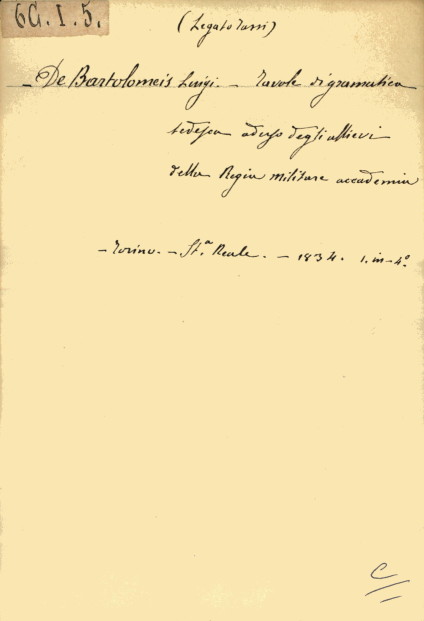 6G.I.5.
(Legato Tassi)
- De Bartolomeis Luigi. - Tavole di gramatica
tedesca ad uso degli allievi
della Regia militare accademia
- Torino. - St.ª Reale. - 1834. 1. in-4º.
C